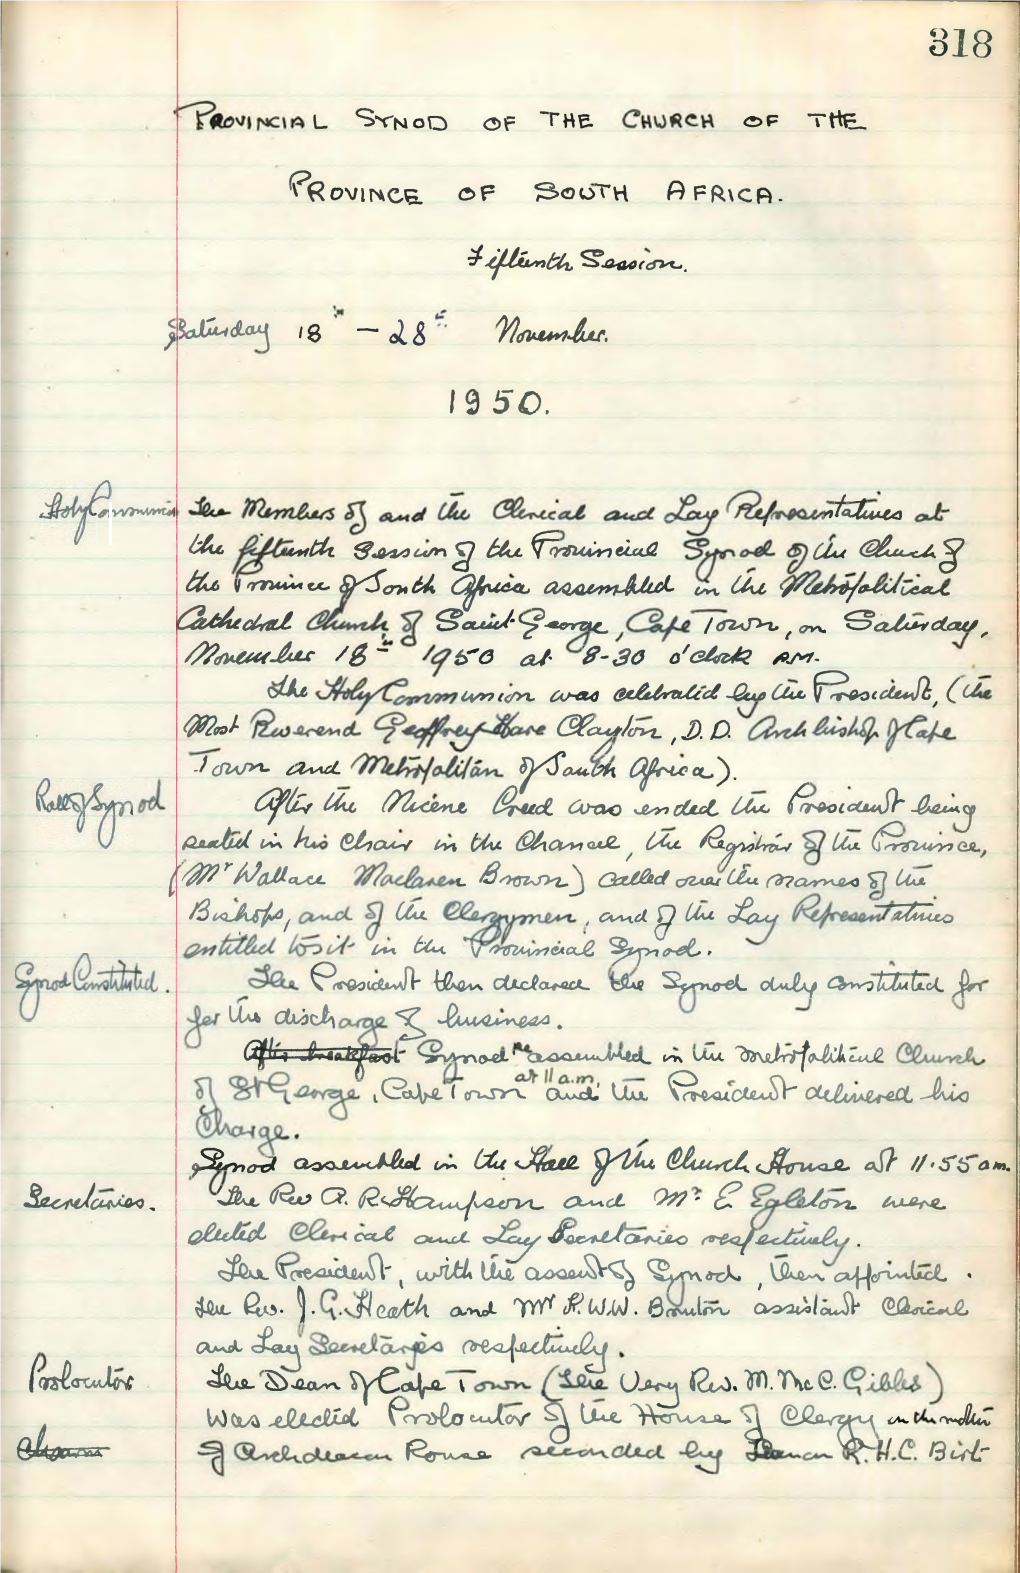 318
PROVINCIAL SYNOD OF THE CHURCH OF THE
PROVINCE OF SOUTH AFRICA.
Fifteenth Session.
Saturday 18th – 28th November.
1950.
Holy Communion
The Members of and the Clerical and Lay Representatives at
the fifteenth Session of the Provincial Synod of the Church of
the Province of South Africa assembled in the Metropolitical
Cathedral Church of Saint George, Cape Town, on Saturday,
November 18th 1950 at 8-30 o'clock A.M.
The Holy Communion was celebrated by the President, (the
Most Reverend Geoffrey Hare Clayton, D.D. Archbishop of Cape
Town and Metropolitan of South Africa).
Roll of Synod
After the Nicene Creed was ended the President being
seated in his Chair in the Chancel, the Registrar of the Province,
(Mr Wallace Maclaren Brown) called over the names of the
Bishops, and of the Clergymen, and of the Lay Representatives
entitled to sit in the Provincial Synod.
Synod Constituted.
The President then declared the Synod duly constituted for
for the discharge of business.
After breakfast Synod reassembled in the Metropolitical Church
of St George, Cape Town at 11 a.m. and the President delivered his
Charge.
Synod assembled in the Hall of the Church House at 11.55 am.
Secretaries.
The Rev A. R. Hampson and Mr E. Egleton were
elected Clerical and Lay Secretaries respectively.
The President, with the assent of Synod, then appointed.
the Rev. J. G. Heath and Mr H.W.W. Brunton assistant Clerical
and Lay Secretaries respectively.
Prolocutor
The Dean of Cape Town (The Very Rev. M. McC. Gibbs)
was elected Prolocutor of the House of Clergy on the motion
of Archdeacon Rouse seconded by Canon R. H.C. Birt